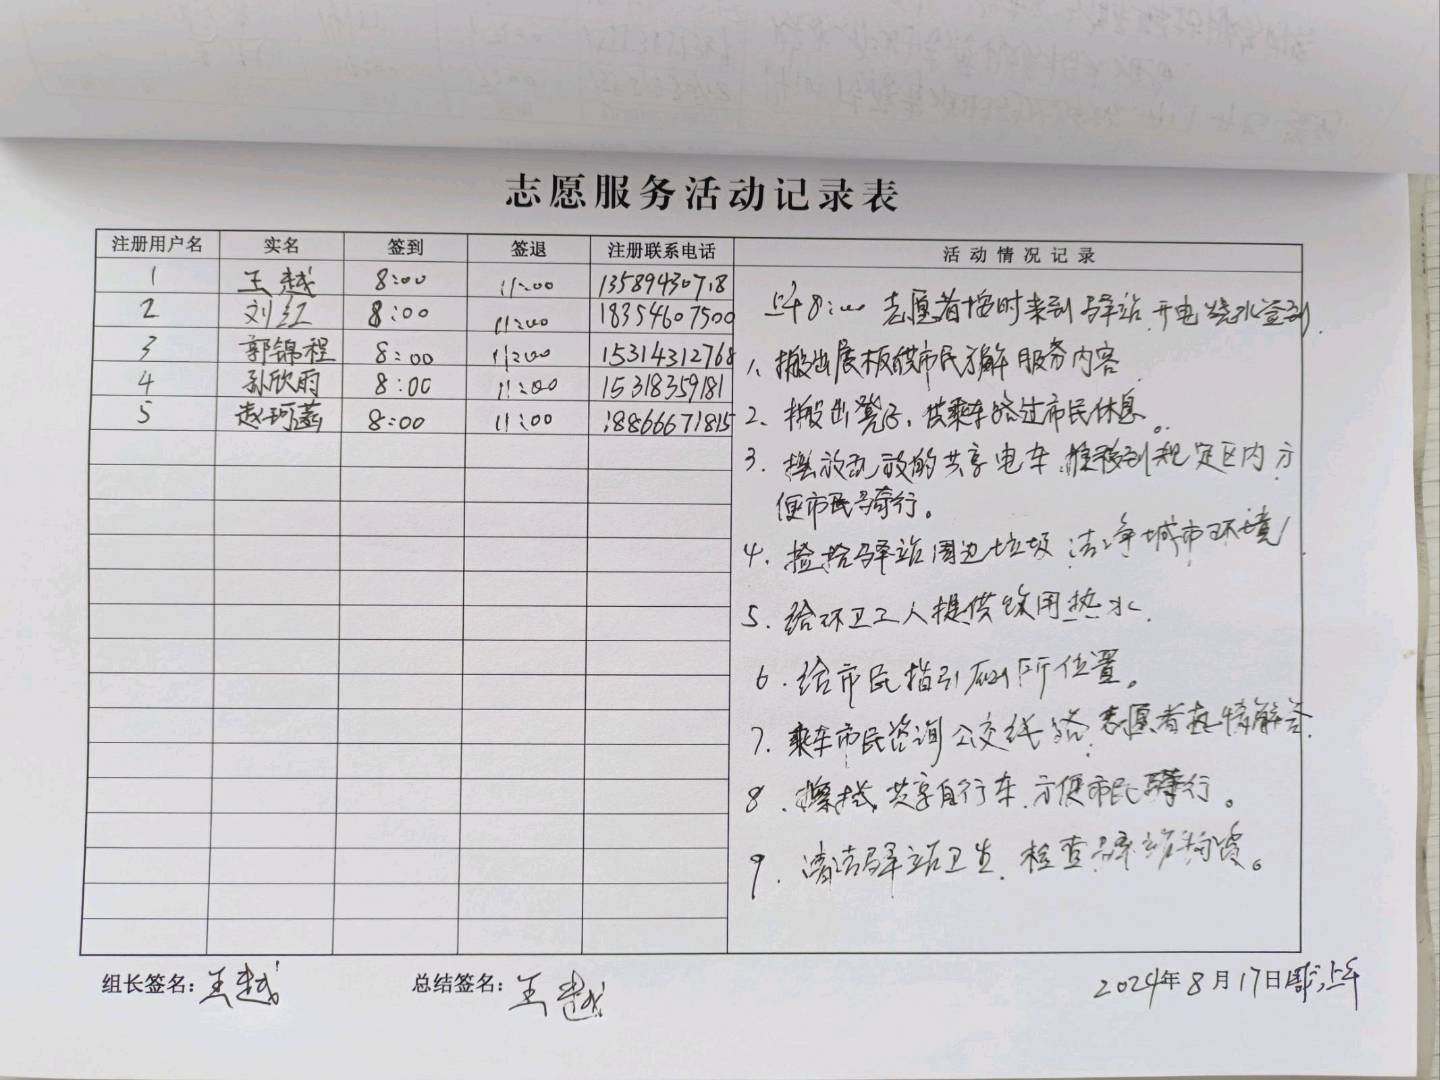 志愿服务活动记录表
注册用户名 实名 签到 签退 注册联系电话 活动情况记录
1 王越 8:00 11:00 13589430718
2 刘红 8:00 11:00 18354607500
3 郭锦程 8:00 11:00 15314312768
4 孙欣雨 8:00 11:00 15318359181
5 赵珂菡 8:00 11:00 18866671815
上午8:00 志愿者按时来到驿站,开电烧水签到.
1、搬出展板供市民了解服务内容
2、搬出凳子,供乘车路过市民休息。
3.乱放的共享电车,推移到规定区内方
便市民骑行。
4.捡拾驿站周边垃圾 洁净城市环境
5.给环卫工人提供饮用热水.
6.给市民指引厕所位置。
7.乘车市民咨询公交线路,志愿者热情解答.
8.擦拭共享自行车,方便市民骑行。
9.清洁驿站卫生,检查驿站物资。
组长签名:王越 总结签名:王越 2024年8月17日周六上午